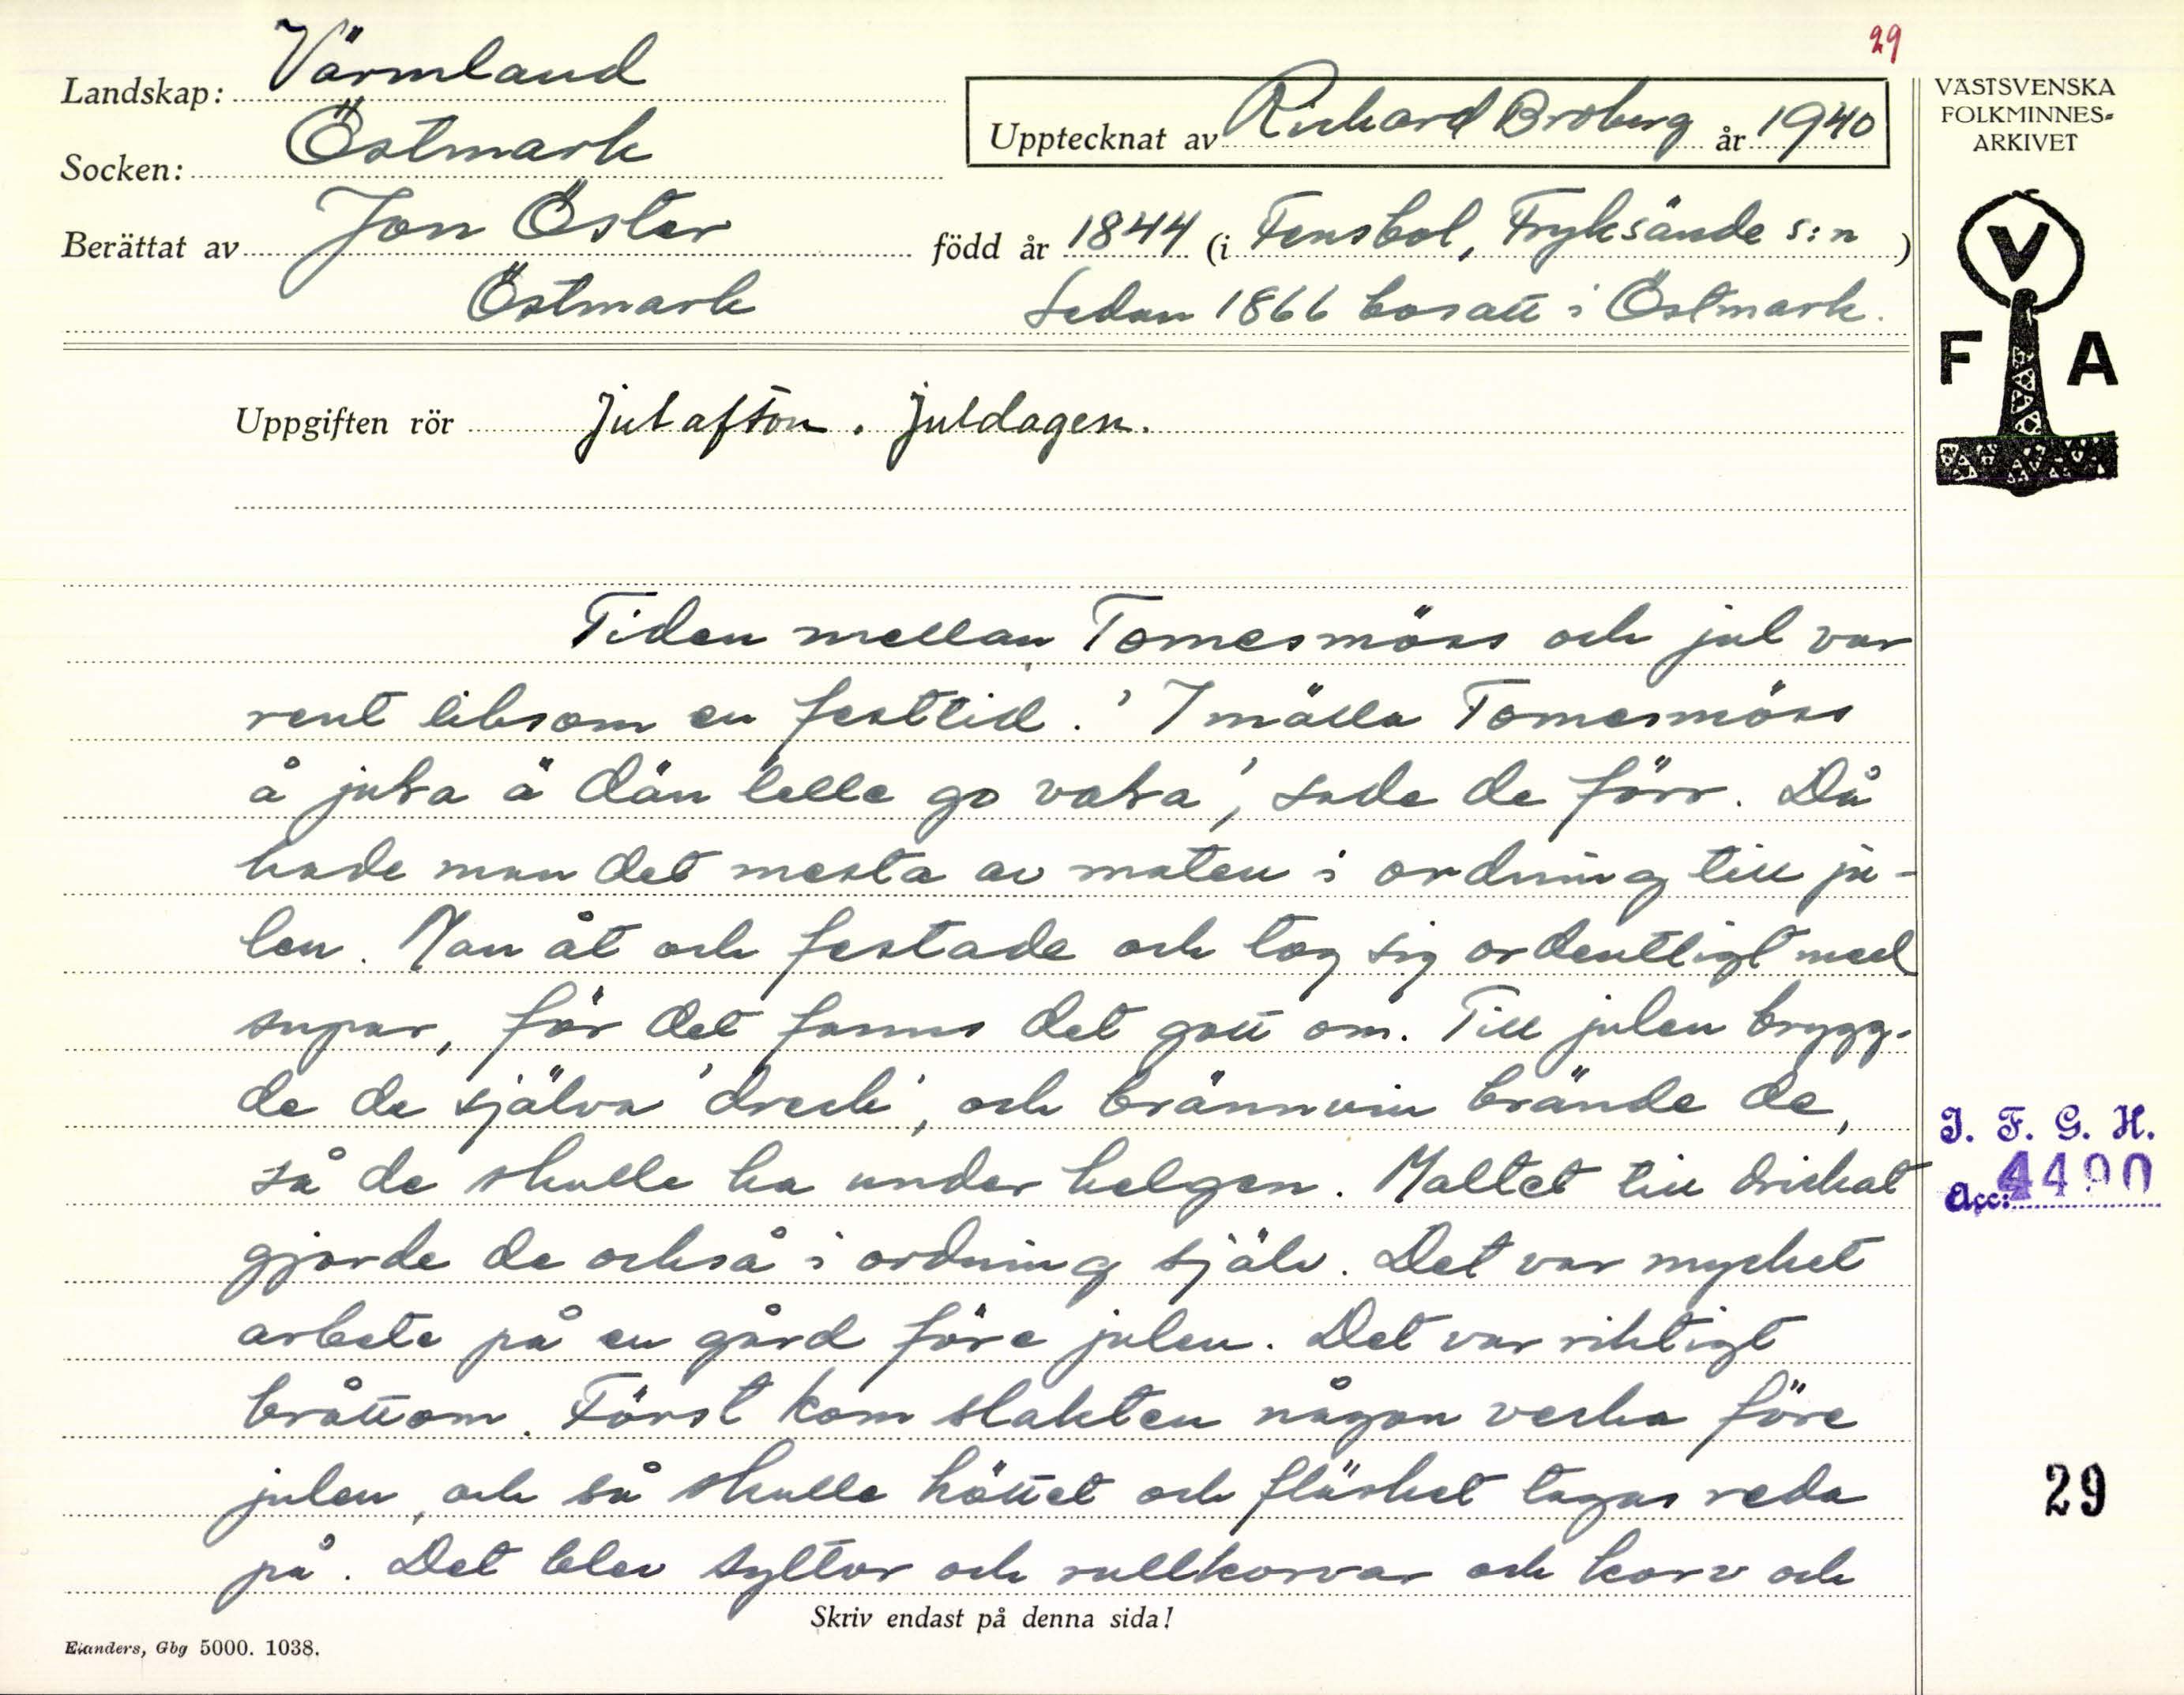 29
Landskap: Värmland
Socken: Östmark
Upptecknat av Richard Broberg år 1940
Berättat av Jon Öster född år 1844 (i Fensbol, Fryksände s:n)
Östmark Sedan 1866 bosatt i Östmark.
VÄSTSVENSKA
FOLKMINNES-
ARKIVET
V
F A
Uppgiften rör julafton. juldagen.
Tiden mellan Tomesmäss och jul var
rent liksom en festtid. 'I mälla Tomesmäss
å jula ä dän lelle go vaka', sade de förr. Då
hade man det mesta av maten i ordning till ju-
len. Man åt och festade och tog sig ordentligt med
supar, för det fanns det gott om. Till julen brygg-
de de själva 'drech', och brännvin brände de,
så de skulle ha under helgen. Maltet till drickat
gjorde de också i ordning själv. Det var mycket
arbete på en gård före julen. Det var riktigt
bråttom. Först kom slakten någon vecka före
julen, och så skulle köttet och fläsket tagas reda
på. Det blev syltor och rullkorvar och korv och
Skriv endast på denna sida!
Elanders, Gbg 5000. 1038.
I. F. G. H.
Acc: 4490
29